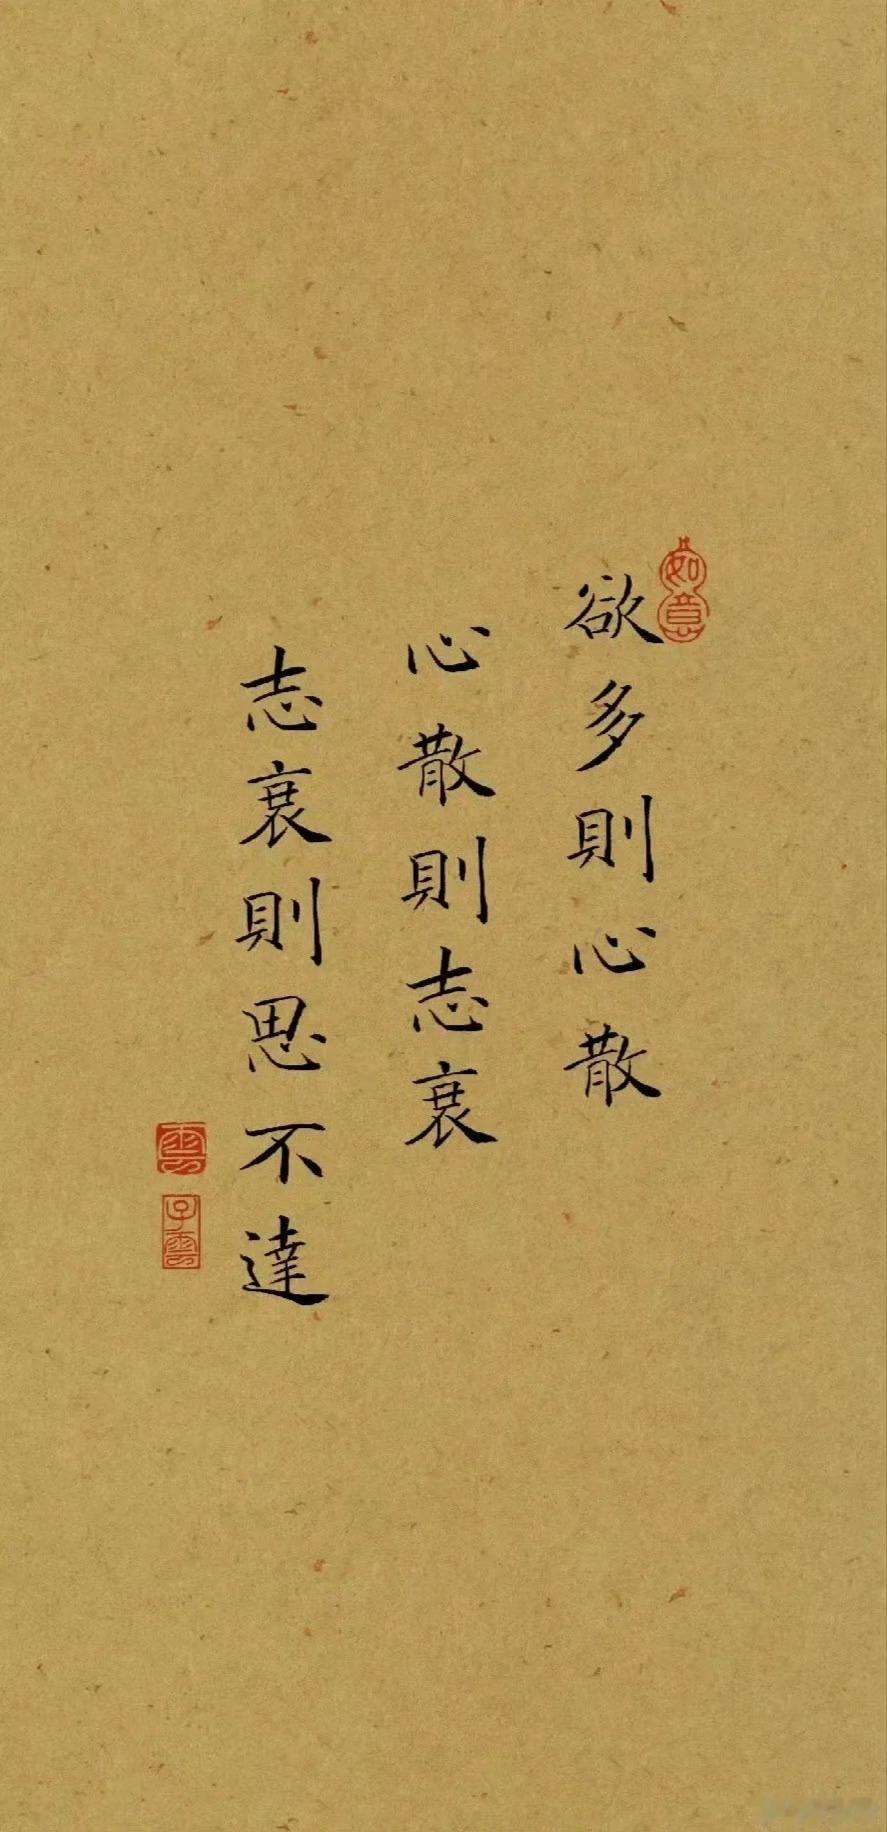 欲多則心散
心散則志衰
志衰則思不達
如意
雲
子雲